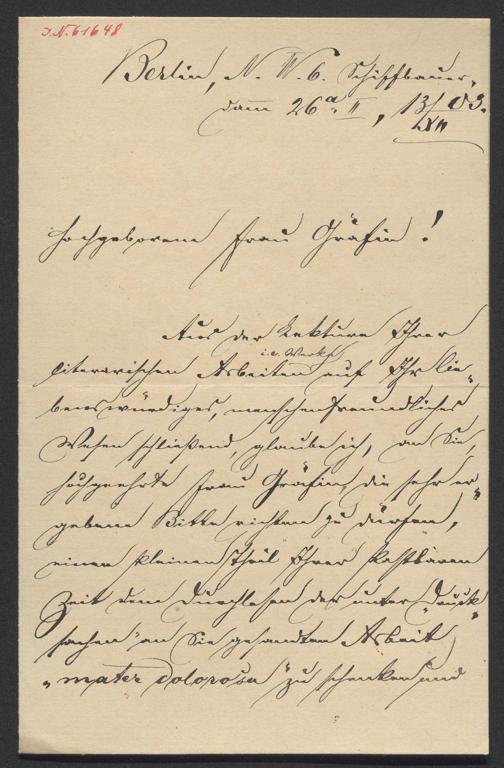 J.N. 61648
Berlin, N. W. 6. Schiffbauer-
damm 26a II, 13/XII 03.
Hochgeborene Frau Gräfin!
Aus der Lektüre Ihrer
literarischen Arbeiten auf Ihr lie-
benswürdiges, menschenfreundliches
Wesen schließend, glaube ich, an Sie,
hochgeehrte Frau Gräfin, die sehr er-
gebene Bitte richten zu dürfen,
einen kleinen Theil Ihrer kostbaren
Zeit dem Durchlesen der unter „Druck-
sachen" an Sie gesandten Arbeit
„mater dolorosa" zu schenken und